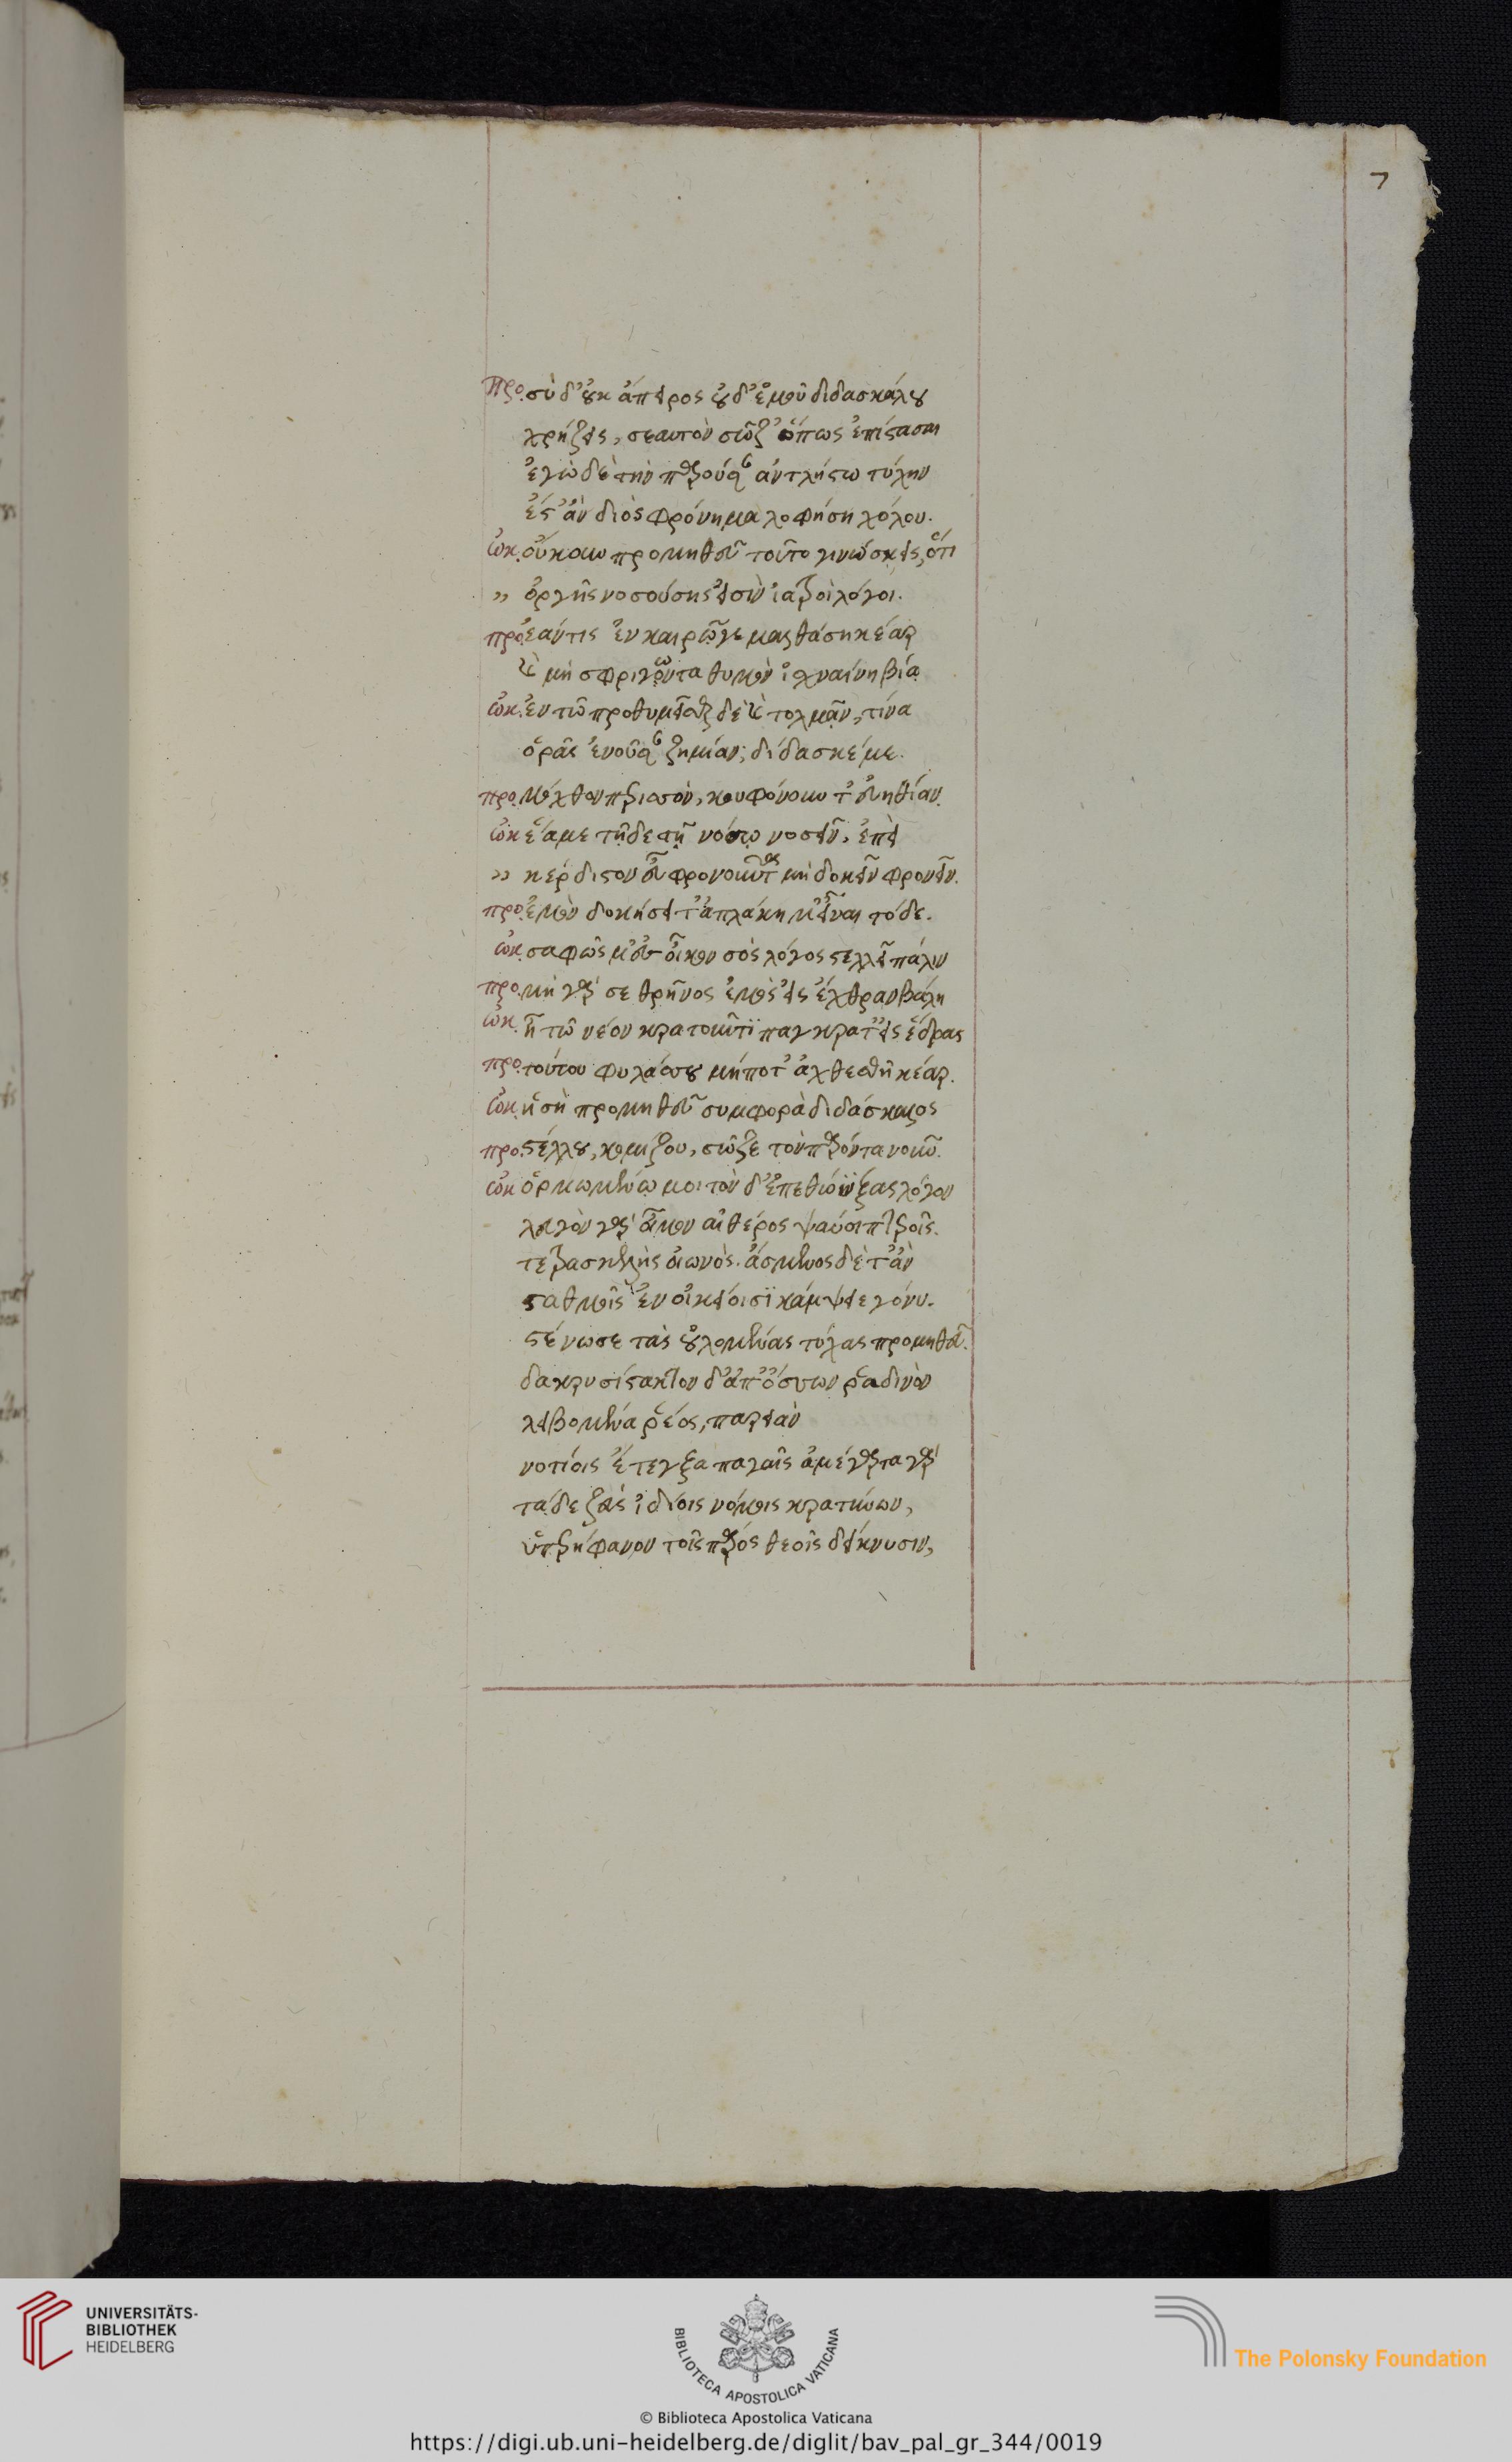 7
προ. σὺ δ' οὐκ ἄπειρος οὐδ' ἐμοῦ διδασκάλου
χρήζεις, σεαυτὸν σῶζ' ὅπως ἐπίστασαι
ἐγὼ δὲ τὴν παροῦσαν ἀντλήσω τύχην
ἔς τ' ἂν διὸς φρόνημα λοφήση χόλου.
ὠκ. οὔκουν προμηθεῦ τοῦτο γινώσκεις, ὅτι
" ὀργῆς νοσούσης εἰσὶν ἰατροὶ λόγοι.
προ. ἐάν τις ἐν καιρῷ γε μαλθάσση κέαρ
καὶ μὴ σφριγῶντα θυμὸν ἰσχναίνη βίᾳ
ὠκ. ἐν τῶ προθυμεῖσθαι δὲ καὶ τολμᾶν, τίνα
ὁρᾶς ἐνοῦσαν ζημίαν; δίδασκέ με.
προ. μόχθον περισσὸν, κουφόνουν τ' εὐηθίαν.
ὠκ ἔα με τῆδε τῇ νόσῳ νοσεῖν, ἐπεὶ
" κέρδιστον εὖ φρονοῦντας μὴ δοκεῖν φρονεῖν.
προ. ἐμὸν δοκήσει τ' ἀπλάκημ' εἶναι τόδε.
ὠκ. σαφῶς μ' ἐς οἶκον σὸς λόγος στέλλει πάλιν
προ. μὴ γάρ σε θρῆνος ἐμὸς εἰς ἔχθραν βάλη
ὠκ. ἦ τῶ νέον κρατοῦντι παγκρατεῖς ἕδρας
προ. τούτου φυλάσσου μήποτ' ἀχθεσθῆ κέαρ.
ὠκ. ἡ σὴ προμηθεῦ συμφορὰ διδάσκαλος
προ. στέλλου, κομίζου, σῶζε τὸν παρόντα νοῦν.
ὠκ ὁρμωμένῳ μοι τὸν δ' ἐπεθώϋξας λόγον
λευρὸν γὰρ οἶμον αἰθέρος ψαύει πτεροῖς.
τετρασκελὴς οἰωνὸς. ἄσμενος δὲ τ' ἂν
σταθμοῖς ἐν οἰκείοισι κάμψειε γόνυ.
στένω σε τὰς οὐλομένας τύχας προμηθεῦ.
δακρυσίστακτον δ' ἀπ' ὄσσων ῥαδινὸν
λειβομένα ῥέος, παρειὰν
νοτίοις ἔτεγξα παγαῖς ἀμέγαρτα γὰρ
τάδε ζεὺς ἰδίοις νόμοις κρατύνων,
ὑπερήφανον τοῖς πάρος θεοῖς δείκνυσιν,
UNIVERSITÄTS-
BIBLIOTHEK
HEIDELBERG
BIBLIOTECA APOSTOLICA VATICANA
The Polonsky Foundation
© Biblioteca Apostolica Vaticana
https://digi.ub.uni-heidelberg.de/diglit/bav_pal_gr_344/0019